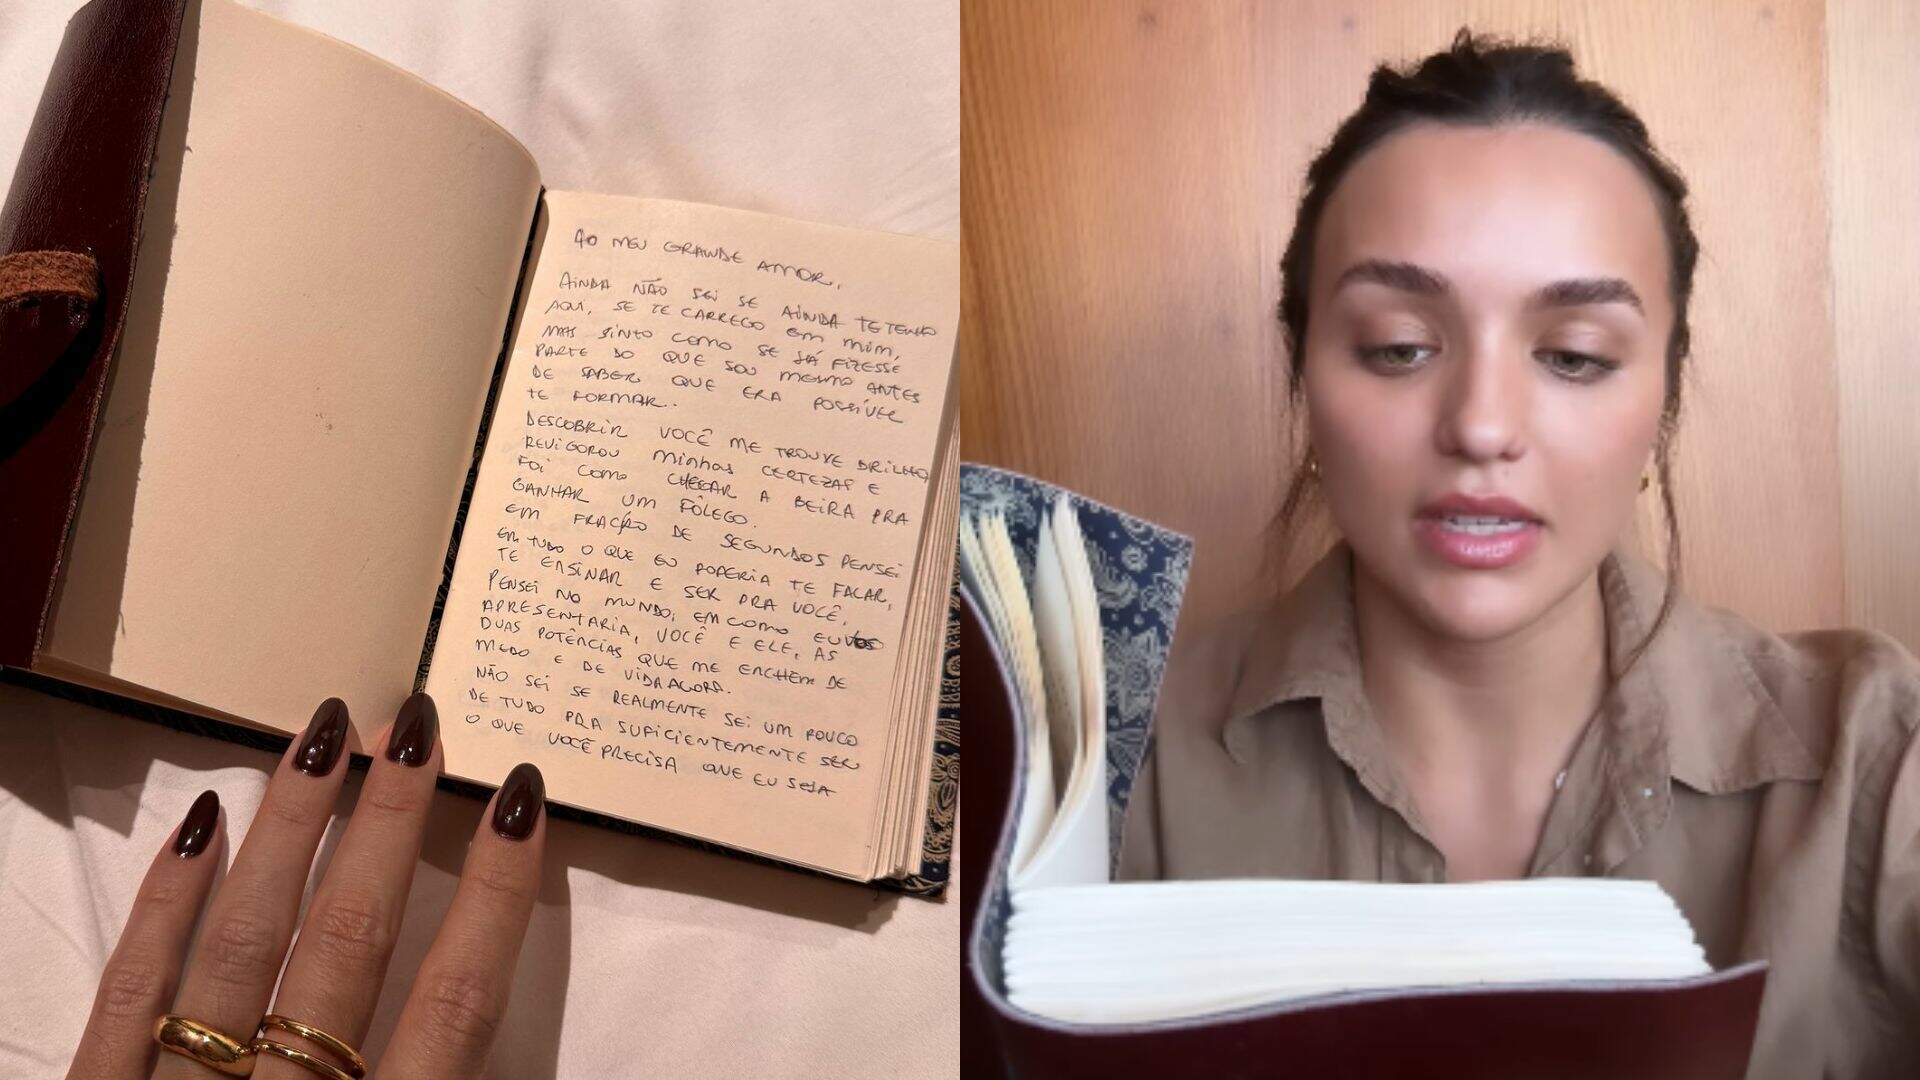 AO MEU GRANDE AMOR,
AINDA NÃO SEI SE AINDA TE TENHO
AQUI, SE TE CARREGO EM MIM,
MAS SINTO COMO SE JÁ FIZESSE
PARTE DO QUE SOU MESMO ANTES
DE SABER QUE ERA POSSÍVEL
TE FORMAR.
DESCOBRIR VOCÊ ME TROUXE BRILHO,
REVIGOROU MINHAS CERTEZAS E
FOI COMO CHEGAR A BEIRA PRA
GANHAR UM FÔLEGO.
EM FRAÇÃO DE SEGUNDOS PENSEI
EM TUDO O QUE EU PODERIA TE FALAR,
TE ENSINAR E SER PRA VOCÊ,
PENSEI NO MUNDO, EM COMO EU
APRESENTARIA, VOCÊ E ELE, AS
DUAS POTÊNCIAS QUE ME ENCHEM DE
MEDO E DE VIDA AGORA.
NÃO SEI SE REALMENTE SEI UM POUCO
DE TUDO PRA SUFICIENTEMENTE SER
O QUE VOCÊ PRECISA QUE EU SEJA